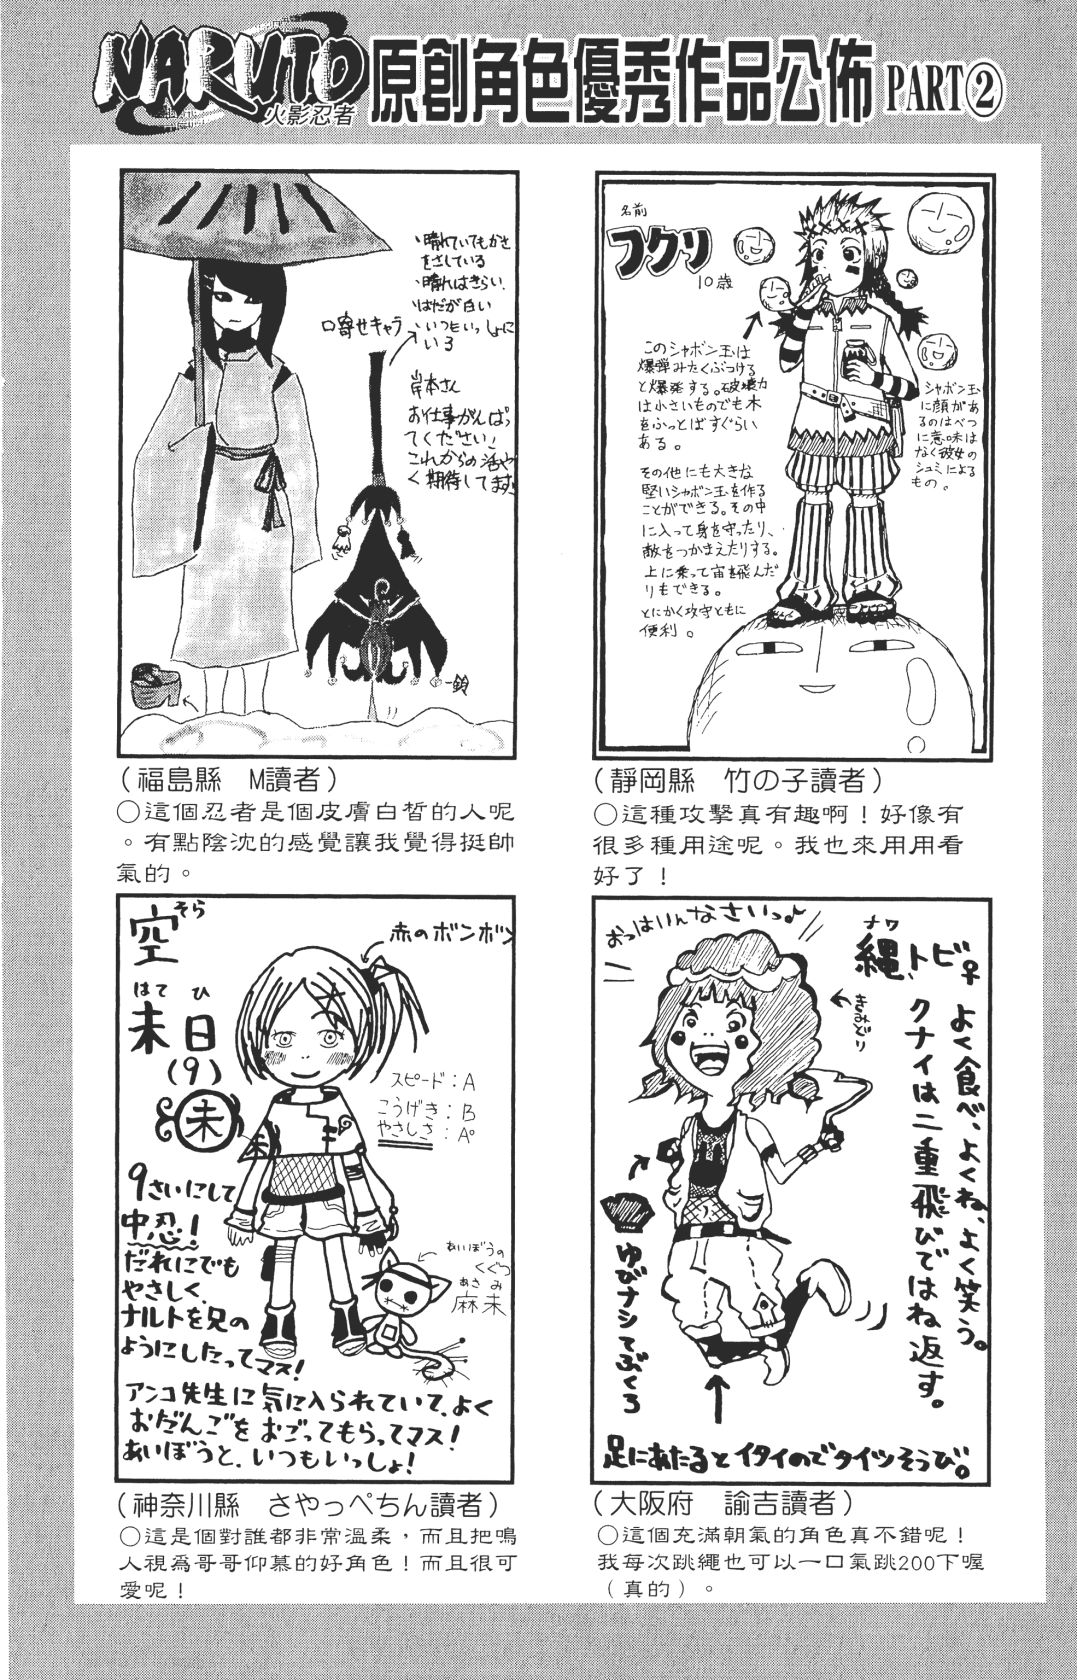 NARUTO
火影忍者
原創角色優秀作品公佈 PART②
・晴れていてもかさ
をさしている
・晴れはきらい.
・はだが白い
・いつもいっしょに
いる
口寄せキャラ
岸本さん
お仕事がんばっ
てください!
これからの活や
く期待してます!
鈴
(福島縣 M讀者)
○這個忍者是個皮膚白皙的人呢
。有點陰沈的感覺讓我覺得挺帥
氣的。
名前
フクリ
10歳
このシャボン玉は
爆弾みたくぶつける
と爆発する。破壊力
は小さいものでも木
をふっとばすぐらい
ある。
その他にも大きな
堅いシャボン玉を作る
ことができる。その中
に入って身を守ったり、
敵をつかまえたりする。
上に乗って宙を飛んだ
りもできる。
とにかく攻守ともに
便利。
シャボン玉
に顔があ
るのはべつ
に意味は
なく彼女の
シュミによる
もの。
(靜岡縣 竹の子讀者)
○這種攻擊真有趣啊!好像有
很多種用途呢。我也來用用看
好了!
空 そら
はて ひ
未日
(9)
未
赤のボンボン
スピード:A
こうげき:B
やさしさ:A°
9さいにして
中忍!
だれにでも
やさしく、
ナルトを兄の
ようにしたってマス!
あいぼうの
くぐつ
あさ み
麻未
アンコ先生に気に入られていて、よく
おだんごをおごってもらってマス!
あいぼうと、いつもいっしょ!
(神奈川縣 さやっぺちん讀者)
○這是個對誰都非常溫柔,而且把鳴
人視為哥哥仰慕的好角色!而且很可
愛呢!
おっはいんなさいっ♪
ナワ
縄トビ♀
きみどり
よく食べ、よくね、よく笑う。
クナイは二重飛びではね返す。
ゆびナシてぶくろ
足にあたるとイタイのでタイツそうび。
(大阪府 諭吉讀者)
○這個充滿朝氣的角色真不錯呢!
我每次跳繩也可以一口氣跳200下喔
(真的)。